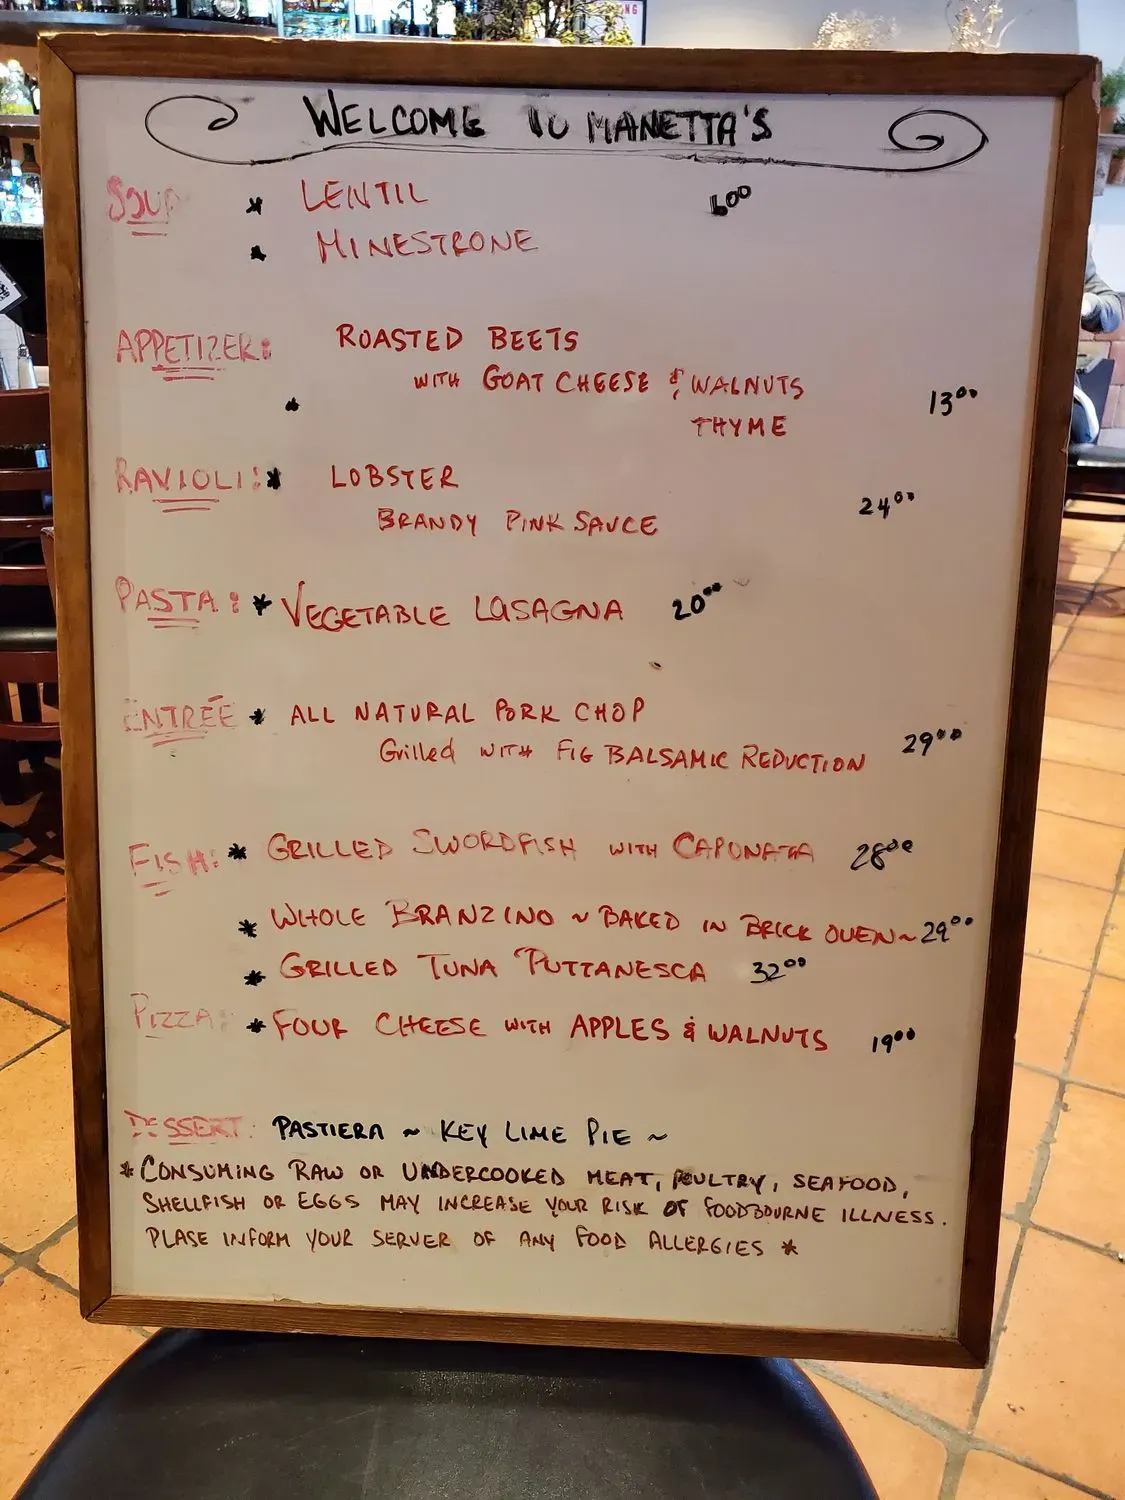 WELCOME TO MANETTA'S
SOUP * LENTIL 6 00
* MINESTRONE
APPETIZER: ROASTED BEETS
WITH GOAT CHEESE & WALNUTS
THYME 13 00
RAVIOLI: * LOBSTER
BRANDY PINK SAUCE 24 00
PASTA: * VEGETABLE LASAGNA 20 00
ENTRÉE * ALL NATURAL PORK CHOP
Grilled WITH FIG BALSAMIC REDUCTION 29 00
FISH: * GRILLED SWORDFISH WITH CAPONATA 28 00
* WHOLE BRANZINO ~ BAKED IN BRICK OVEN ~ 29 00
* GRILLED TUNA PUTTANESCA 32 00
PIZZA: * FOUR CHEESE WITH APPLES & WALNUTS 19 00
DESSERT: PASTIERA ~ KEY LIME PIE ~
* CONSUMING RAW OR UNDERCOOKED MEAT, POULTRY, SEAFOOD,
SHELLFISH OR EGGS MAY INCREASE YOUR RISK OF FOODBOURNE ILLNESS.
PLASE INFORM YOUR SERVER OF ANY FOOD ALLERGIES *